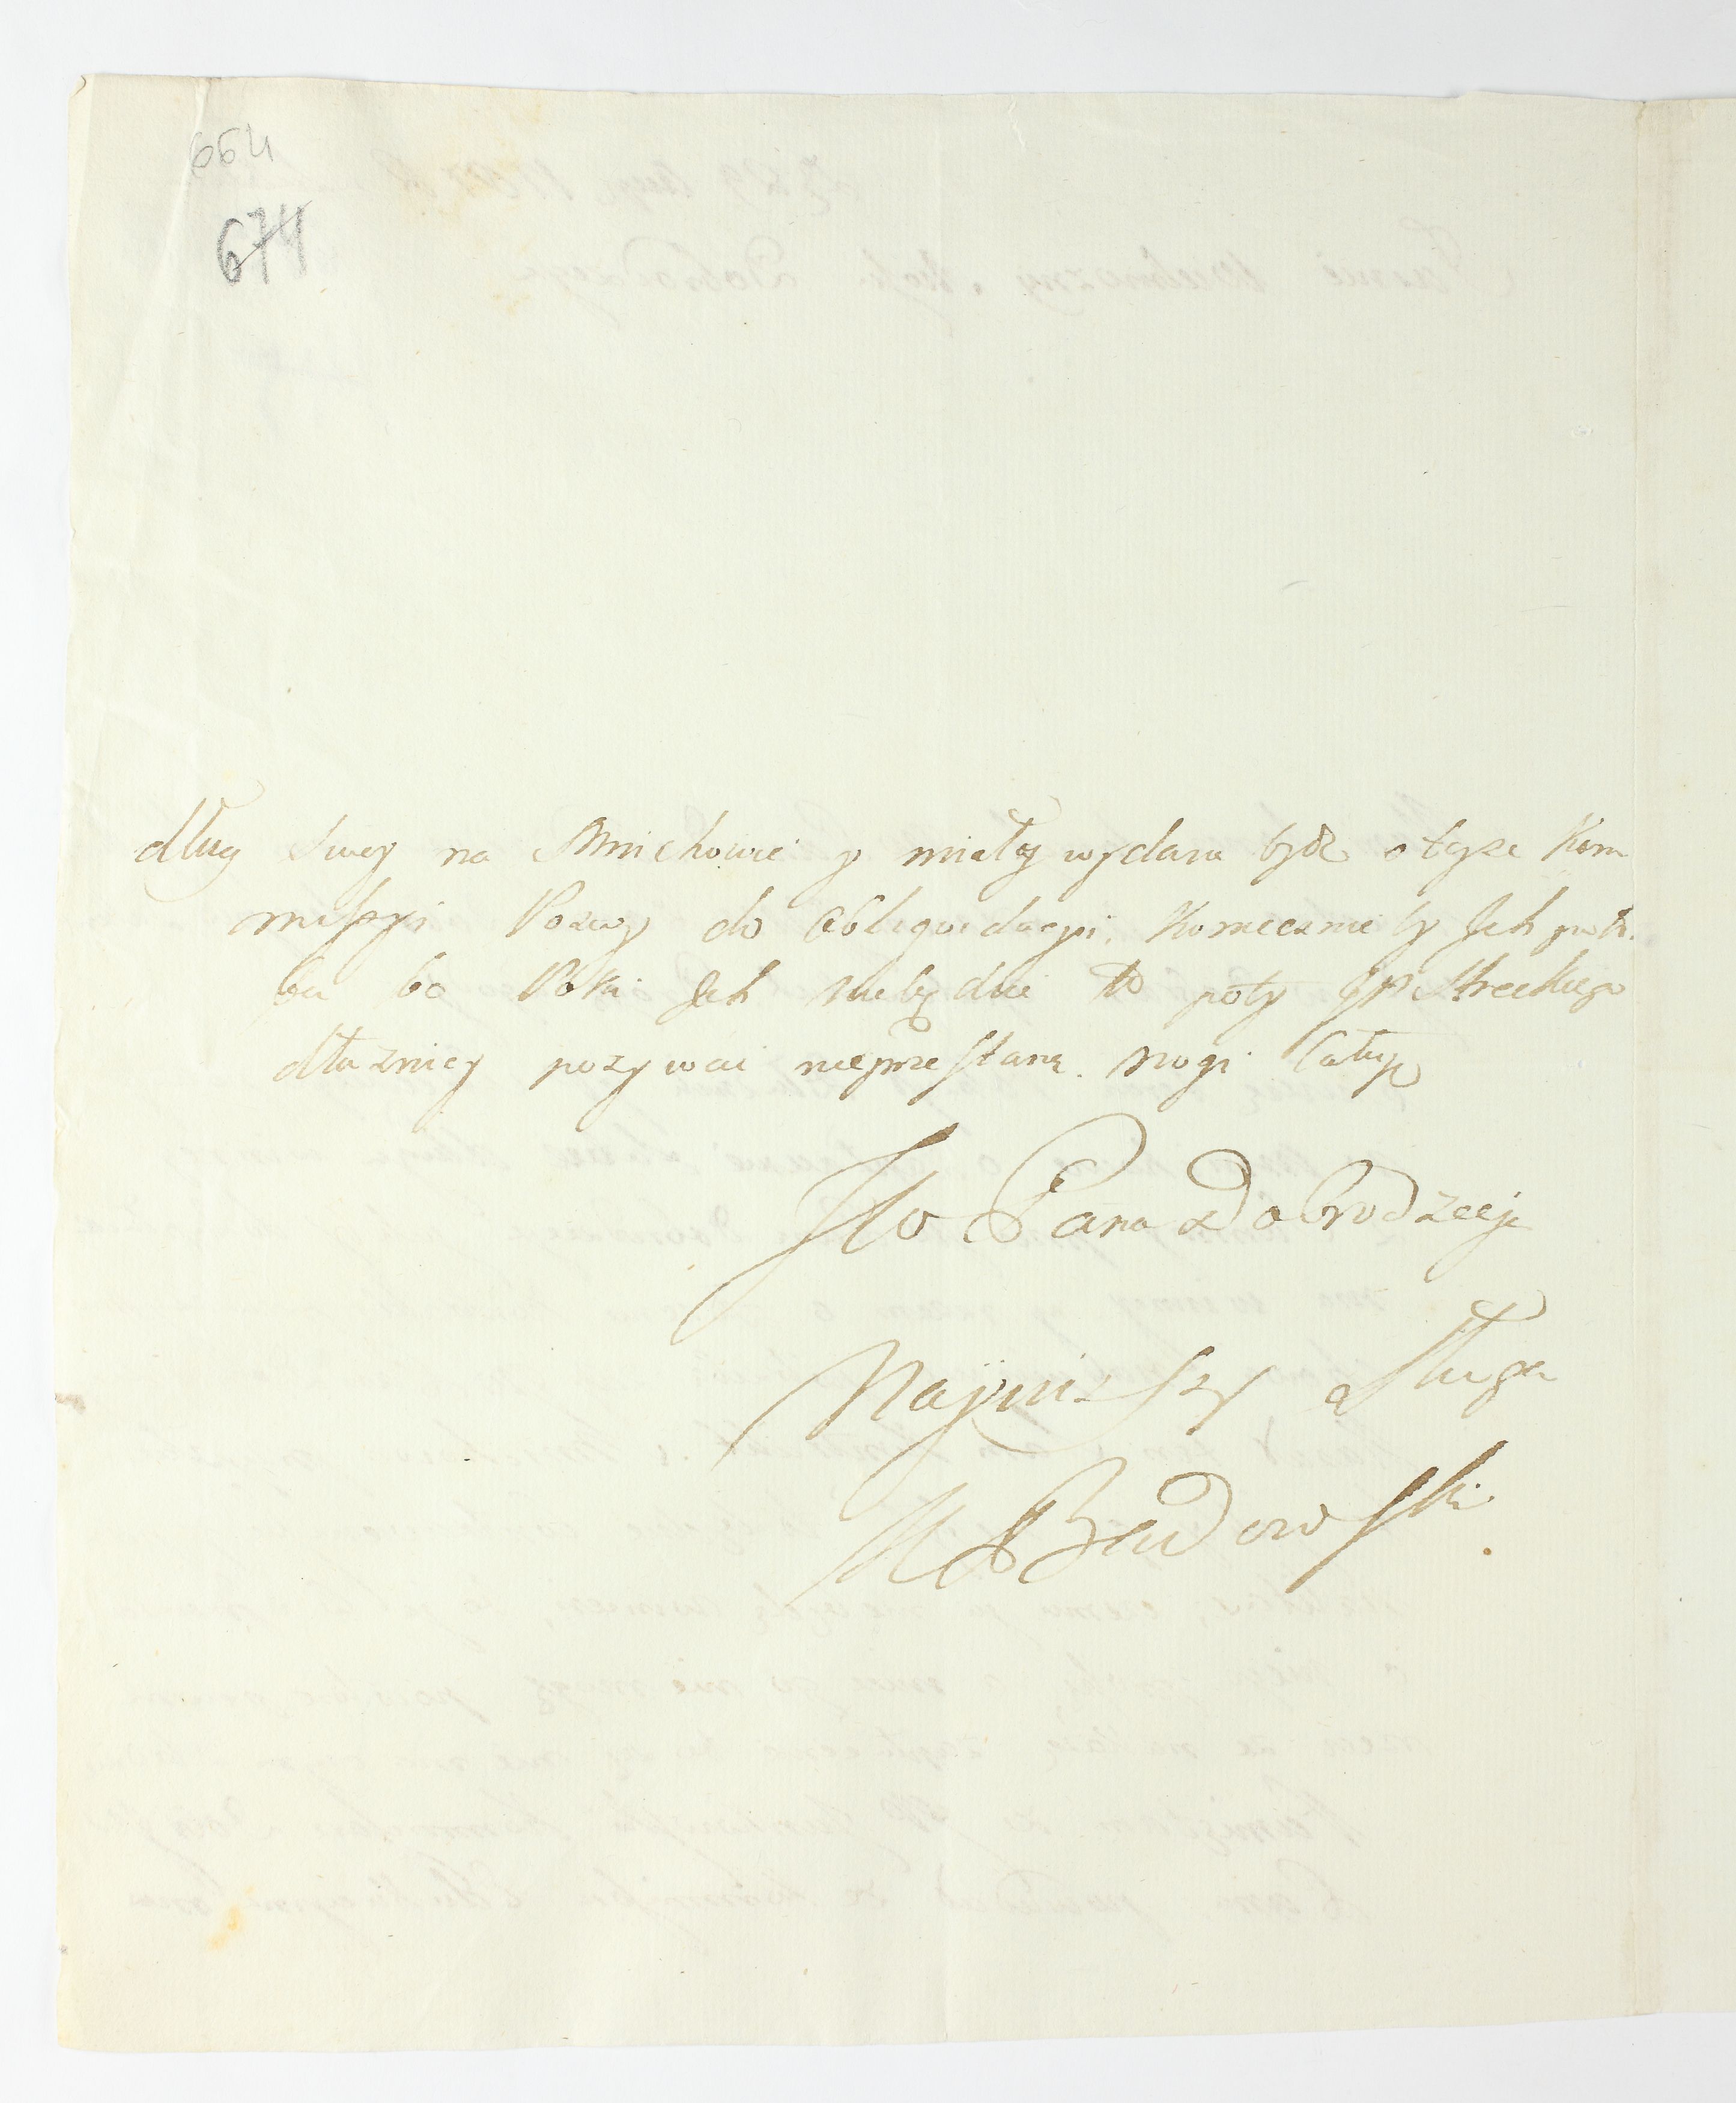 664
674
długi swey na Mnichowie y miały wydane bydź o teyże Kom
missyi Pozwy do Obliquidacyi. Koniecznie by Jch potrze.
ba bo Poki Jch niebędzie to poty JP Streckiego
dłużnicy pozywać nieprzestaną. Nogi Całuję
JW Pana Dobrodzieja
Nayniższy Sługa
Bendowski.